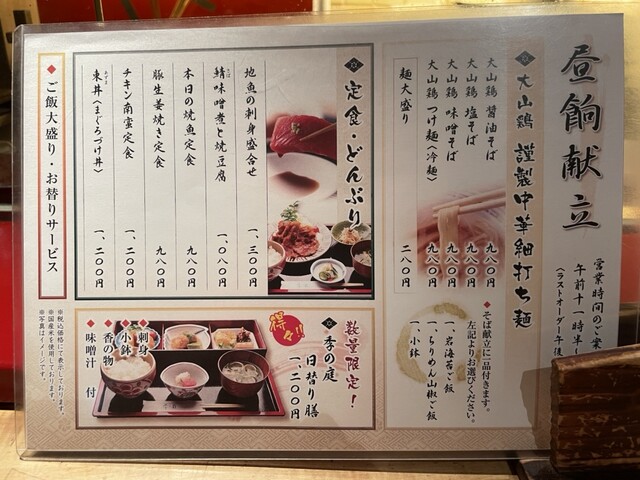 昼餉献立
営業時間のご案
午前十一時半〜
(ラストオーダー午後
◆大山鶏 謹製中華細打ち麺
大山鶏 醤油そば 九八〇円
大山鶏 塩そば 九八〇円
大山鶏 味噌そば 九八〇円
大山鶏 つけ麺(冷麺) 九八〇円
麺大盛り 二八〇円
◆そば献立に一品付きます。
左記よりお選びください。
一、岩海苔ご飯
一、ちりめん山椒ご飯
一、小鉢
◆定食・どんぶり
地魚の刺身盛合せ 一、三〇〇円
鯖味噌煮と焼豆腐 一、〇八〇円
さば
本日の焼魚定食 九八〇円
豚生姜焼き定食 九八〇円
チキン南蛮定食 一、二〇〇円
東丼(まぐろづけ丼) 一、二〇〇円
あずま
◆ご飯大盛り・お替りサービス
数量限定!
得々!!
◆季の庭
日替り膳
一、二〇〇円
◆刺身
◆小鉢
◆香の物
◆味噌汁 付
※税込価格にて表示しております。
※国産米を使用しております。
※写真はイメージです。